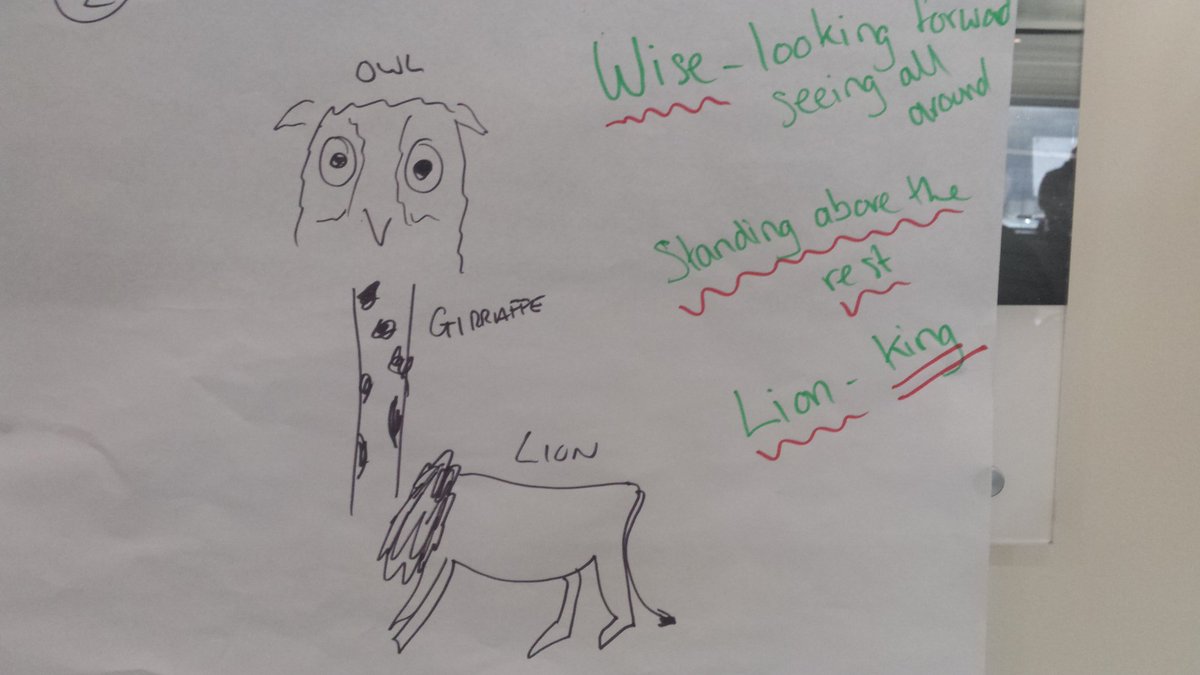 OWL
Wise - looking forward
seeing all
around
Standing above the
rest
GIRRIAFFE
Lion - King
LION